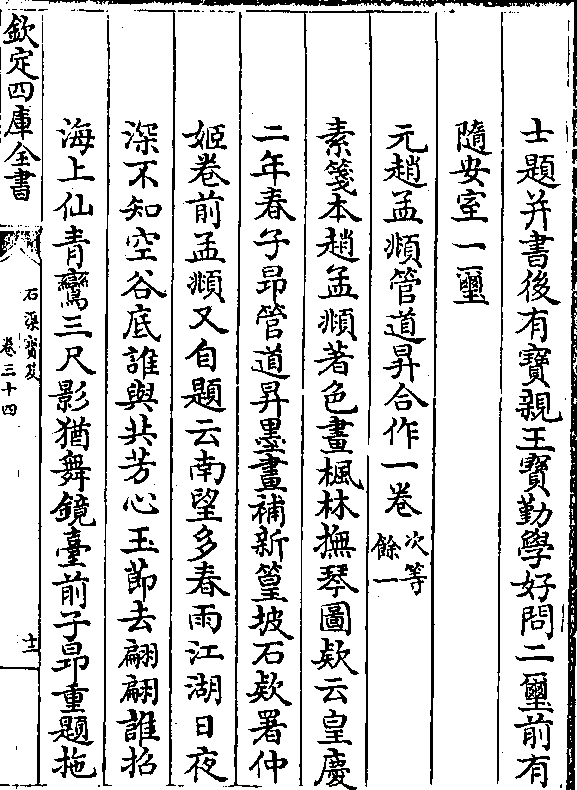 士題并書後有寶親王寶勤學好問二璽前有
隨安室一璽
元趙孟頫管道昇合作一卷次等餘一
素箋本趙孟頫著色畫楓林撫琴圖欵云皇慶
二年春子昂管道昇墨畫補新篁坡石欵署仲
姬卷前孟頫又自題云南望多春雨江湖日夜
深不知空谷底誰與共芳心玉節去翩翩誰招
海上仙青鸞三尺影猶舞鏡臺前子昻重題拖
欽定四庫全書
石渠寶笈
卷三十四
十二